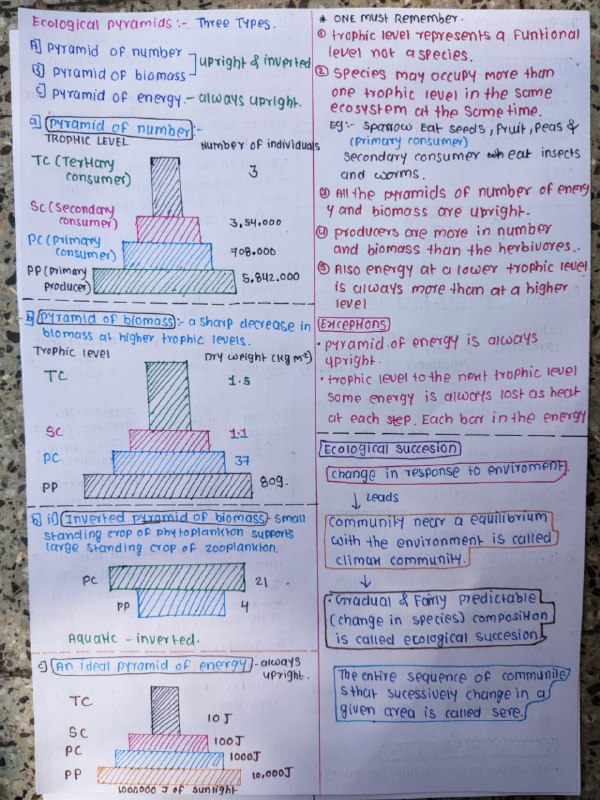 Ecological pyramids :- Three Types.
A] pyramid of number
B] pyramid of biomass
upright & inverted
C] pyramid of energy - always upright.
a] pyramid of number :-
TROPHIC LEVEL
Number of individuals
TC (Tertiary
consumer)
3
SC (Secondary
consumer)
3,54,000
PC (primary
consumer)
708.000
PP (primary
producer)
5,842.000
b] pyramid of biomass :- a sharp decrease in
biomass at higher trophic levels.
Trophic level
Dry weight (kg m²)
TC
1.5
SC
1.1
PC
37
PP
809.
b) ii] Inverted pyramid of biomass - small
standing crop of phytoplankton supports
large standing crop of zooplankton.
PC
21
PP
4
Aquatic - inverted.
c] An ideal pyramid of energy - always
upright.
TC
10 J
SC
100 J
PC
1000 J
PP
10,000 J
1000000 J of sunlight
* ONE must Remember.
① trophic level represents a funtional
level not a species.
② species may occupy more than
one trophic level in the same
ecosystem at the same time.
Eg :- Sparrow Eat seeds, fruit, Peas &
(primary consumer)
secondary consumer eat insects
and worms.
③ All the pyramids of number of energ
y and biomass are upright.
④ producers are more in number
and biomass than the herbivores.
⑤ Also energy at a lower trophic level
is always more than at a higher
level
Exceptions
• pyramid of energy is always
upright.
• trophic level to the next trophic level
some energy is always lost as heat
at each step. Each bar in the energy
Ecological succesion
change in response to enviroment.
↓ Leads
Community near a equilibrium
with the environment is called
climax community.
↓
• Gradual & Fairly predictable
(change in species) composition
is called ecological succesion
The entire sequence of communitie
s that sucessively change in a
given area is called sere.